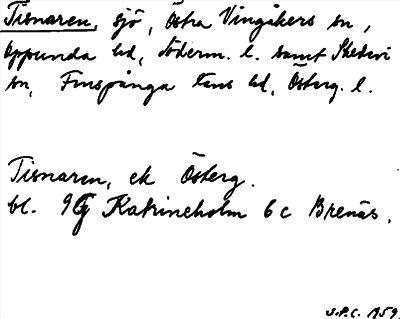 Tisnaren, sjö, Östra Vingåkers sn,
Oppunda hd, Söderm. l. samt Skedevi
sn, Finspånga läns hd, Österg. l.
Tisnaren, ek Österg.
bl. 9G Katrineholm 6 c Brenäs.
S.P.C. 1959